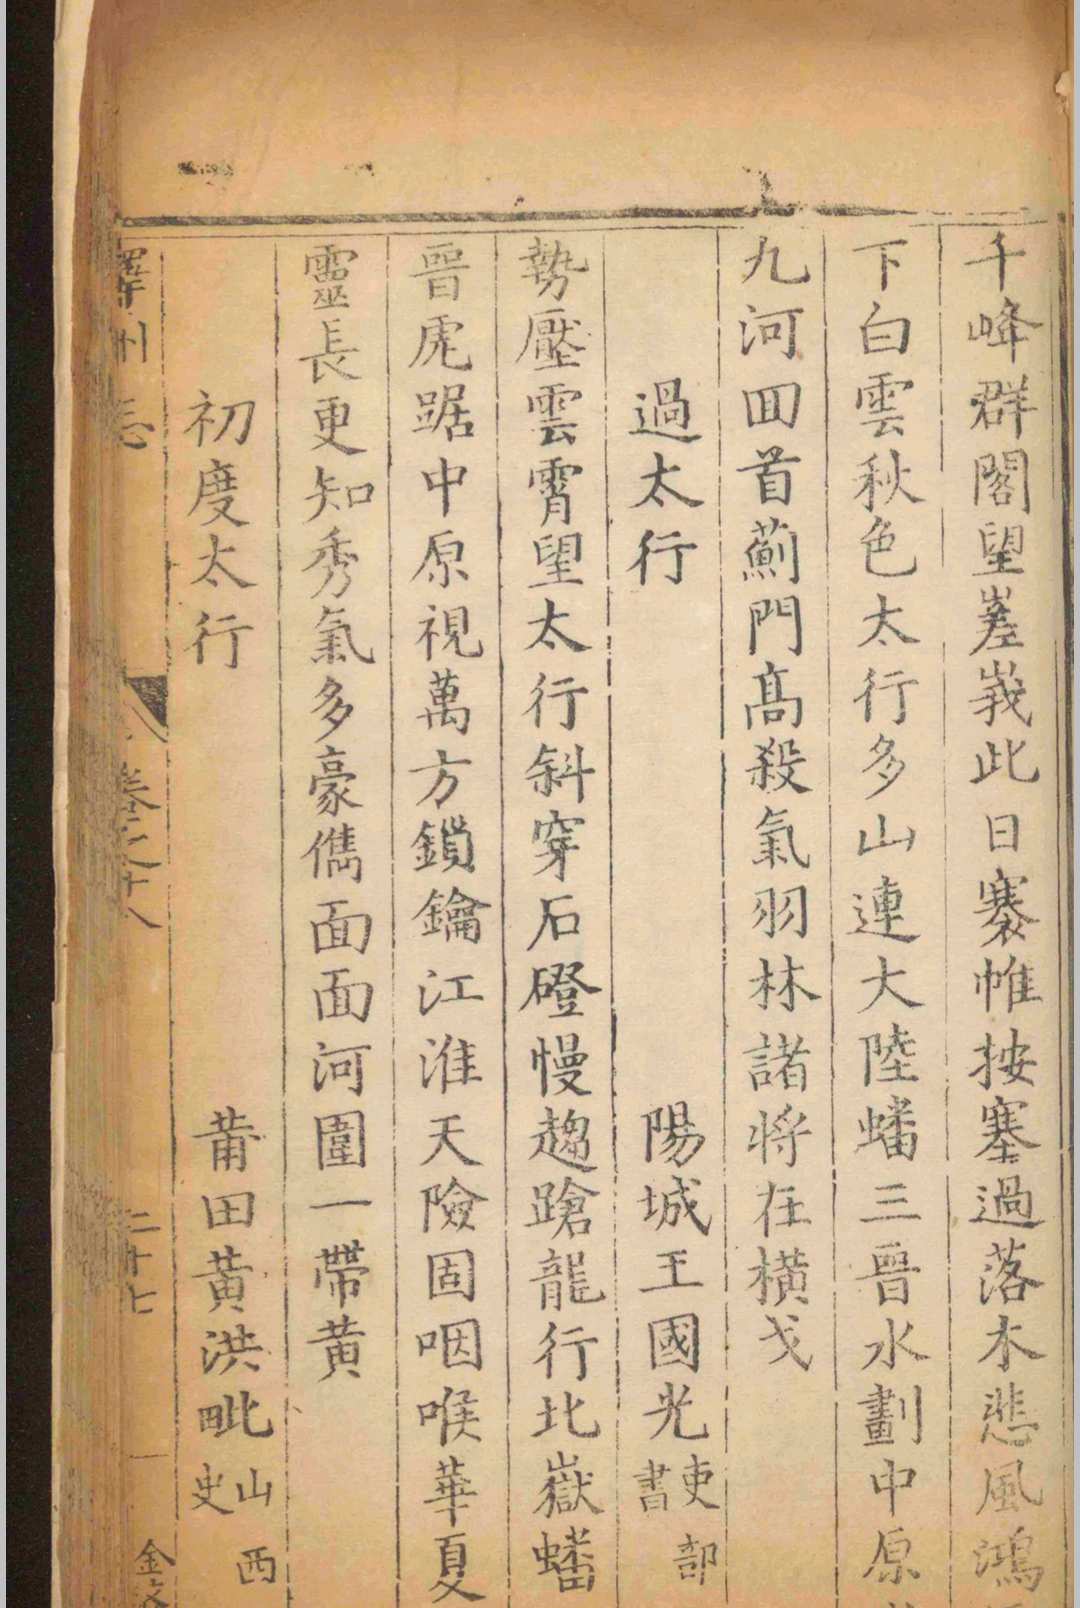 千峰群閣望嵳峩此日褰帷按塞過落木悲風鴻
下白雲秋色太行多山連大陸蟠三晉水劃中原
九河回首薊門髙殺氣羽林諸將在橫戈
過太行 陽城王國光吏部書
勢壓雲霄望太行斜穿石磴慢趨蹌龍行北嶽蟠
晉虎踞中原視萬方鎖鑰江淮天險固咽喉華夏
靈長更知秀氣多豪儁面面河圍一帶黃
初度太行 莆田黃洪毗山西史
澤州志 卷之十八 二十七